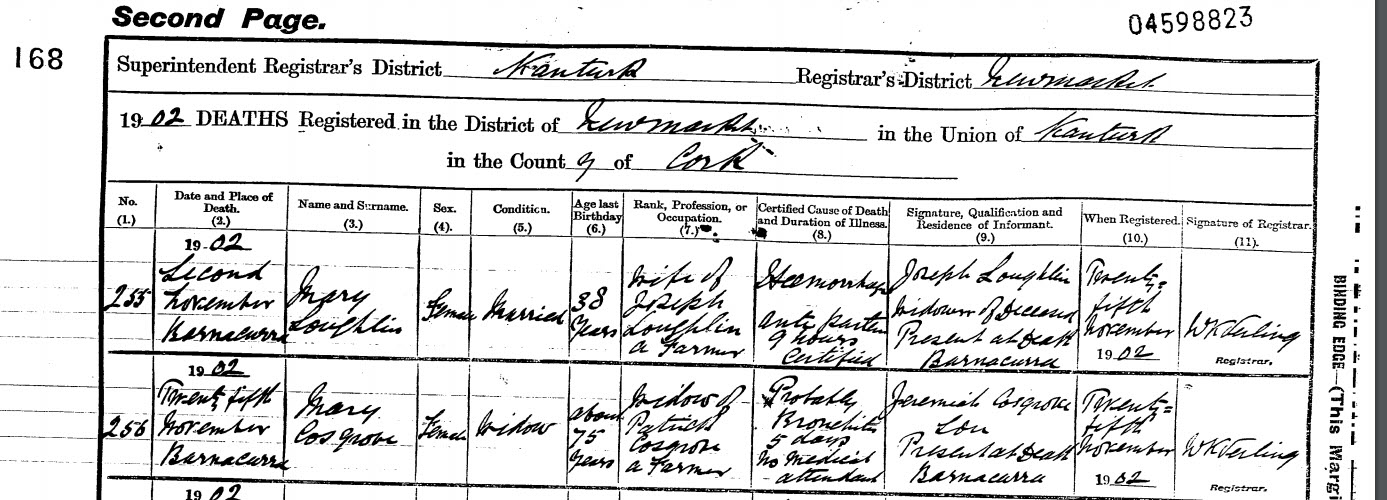 Second Page.
04598823
168
Superintendent Registrar's District Kanturk Registrar's District Newmarket
1902 DEATHS Registered in the District of Newmarket in the Union of Kanturk
in the County of Cork
No. (1.)
Date and Place of Death. (2.)
Name and Surname. (3.)
Sex. (4).
Condition. (5.)
Age last Birthday (6.)
Rank, Profession, or Occupation. (7.)
Certified Cause of Death and Duration of Illness. (8.)
Signature, Qualification and Residence of Informant. (9.)
When Registered. (10.)
Signature of Registrar. (11).
255
1902
Second
November
Barnacurra
Mary
Loughlin
Female
Married
38
Years
Wife of
Joseph
Loughlin
a Farmer
Haemorrhage
ante partum
9 hours
Certified
Joseph Loughlin
Widower of Deceased
Present at Death
Barnacurra
Twenty=
fifth
November
1902
WKVerling
Registrar.
256
1902
Twenty fifth
November
Barnacurra
Mary
Cosgrove
Female
Widow
about
75
Years
Widow of
Patrick
Cosgrove
a Farmer
Probably
Bronchitis
5 days
No Medical
attendant
Jeremiah Cosgrove
Son
Present at Death
Barnacurra
Twenty=
fifth
November
1902
WKVerling
Registrar.
1902
BINDING EDGE. (This Margi